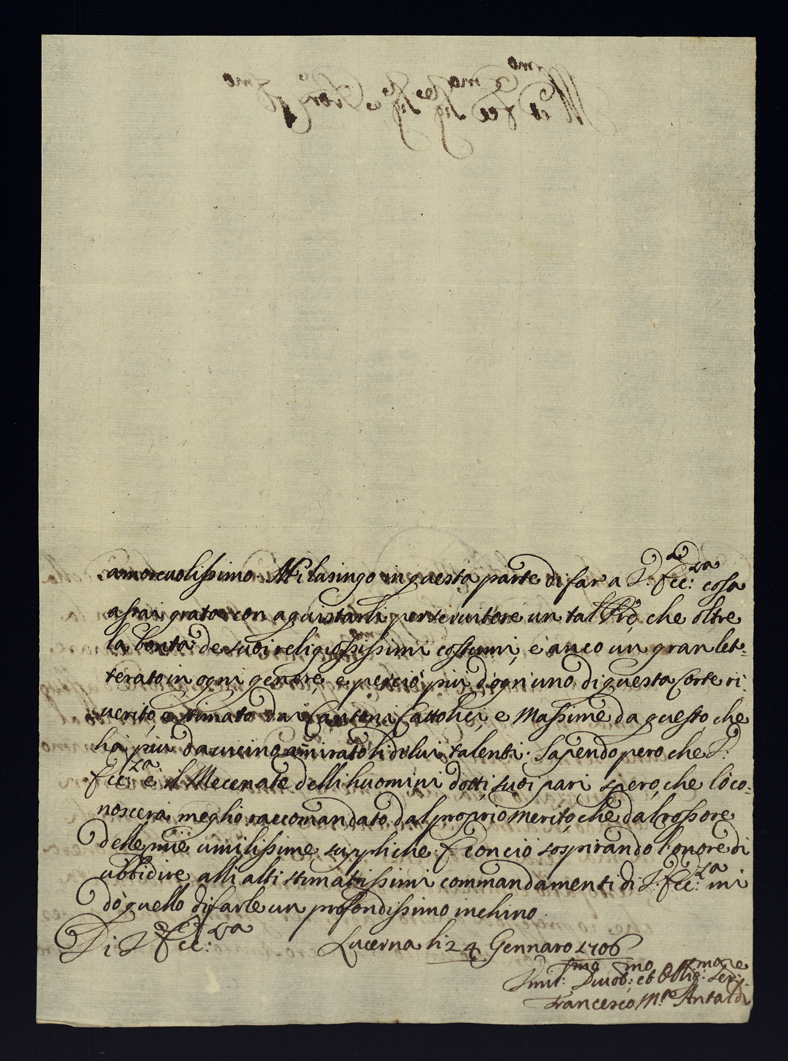 amoreuolissimo. Mi lusingo in questa parte di far a V.ra Ecc:za cosa
assai grata con aquistarli per seruitore un tal P.re, che oltre
la bontà de suoi religiosissimi costumi, è anco un gran let-
terato in ogni genere, e perciò più d'ogn'uno di questa Corte ri-
uerito, e stimato da i Cantoni Cattolici, e Massime da questo che
hà più da uicino amirato li di lui talenti. Sapendo però che V.
Ecc:za è il Mecenate delli huomini dotti suoi pari spero, che lo co-
noscerà meglio raccomandato dal proprio merito, che dal rossore
delle mie umilissime suppliche. E con ciò sospirando l'onore di
ubbidire alli alti stimatissimi commandamenti di V. Ecc:za mi
dò quello di farle un profondissimo inchino.
Di V. Ecc:za Lucerna li 24 Gennaro 1706
Umil:mo Diuot:mo et Oblig:mo Ser:re
Francesco M.a Antaldi